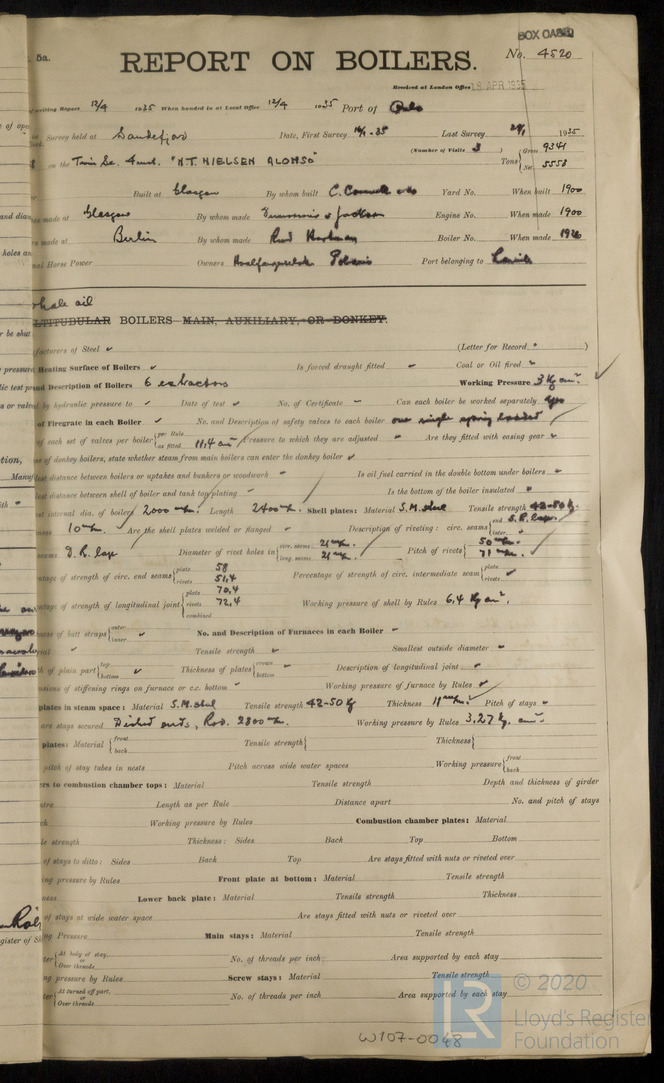 5a.
BOX CASED
REPORT ON BOILERS.
No. 4520
Received at London Office 18 APR 1935
writing Report 12/4 1935 When handed in at Local Office 12/4 1935 Port of Oslo
Survey held at Sandefjord Date, First Survey Last Survey 1935
(Number of Visits 3)
on the Twin Sc. "N.T. NIELSEN ALONSO" Tons { Gross 9341
Net 5553
Built at Glasgow By whom built Yard No. When built 1900
made at Glasgow By whom made Engine No. When made 1900
made at Berlin By whom made Boiler No. When made
Horse Power Owners Port belonging to Larvik
whale oil
MULTITUBULAR BOILERS MAIN, AUXILIARY, OR DONKEY.
of Steel (Letter for Record )
Heating Surface of Boilers Is forced draught fitted Coal or Oil fired
and Description of Boilers 6 extractors Working Pressure 3 Kg cm².
by hydraulic pressure to Date of test No. of Certificate Can each boiler be worked separately yes
of Firegrate in each Boiler No. and Description of safety valves to each boiler one single spring loaded
of each set of valves per boiler { per Rule
as fitted 11,4 cm² Pressure to which they are adjusted Are they fitted with easing gear
of donkey boilers, state whether steam from main boilers can enter the donkey boiler
distance between boilers or uptakes and bunkers or woodwork Is oil fuel carried in the double bottom under boilers
distance between shell of boiler and tank top plating Is the bottom of the boiler insulated
internal dia. of boilers 2000 m/m. Length 2400 m/m. Shell plates: Material S.M. steel Tensile strength 42-50 Kg.
10 m/m. Are the shell plates welded or flanged Description of riveting: circ. seams { end S.R. lap.
inter.
seams D.R. lap Diameter of rivet holes in { circ. seams 21 m/m.
long. seams 21 m/m. Pitch of rivets { 50 m/m.
71 m/m.
of strength of circ. end seams { plate 58
rivets 51,4 Percentage of strength of circ. intermediate seam { plate
rivets
of strength of longitudinal joint { plate 70,4
rivets 72,4
combined Working pressure of shell by Rules 6,4 Kg cm².
of butt straps { outer
inner No. and Description of Furnaces in each Boiler
Tensile strength Smallest outside diameter
of plain part { top
bottom Thickness of plates { crown
bottom Description of longitudinal joint
of stiffening rings on furnace or c.c. bottom Working pressure of furnace by Rules
plates in steam space: Material S.M. steel Tensile strength 42-50 Kg Thickness 11 m/m. Pitch of stays
are stays secured Dished ends, Rad. 2800 m/m. Working pressure by Rules 3,27 Kg. cm².
plates: Material { front
back Tensile strength { Thickness {
pitch of stay tubes in nests Pitch across wide water spaces Working pressure { front
back
to combustion chamber tops: Material Tensile strength Depth and thickness of girder
Length as per Rule Distance apart No. and pitch of stays
Working pressure by Rules Combustion chamber plates: Material
strength Thickness: Sides Back Top Bottom
of stays to ditto: Sides Back Top Are stays fitted with nuts or riveted over
pressure by Rules Front plate at bottom: Material Tensile strength
Lower back plate: Material Tensile strength Thickness
of stays at wide water space Are stays fitted with nuts or riveted over
Pressure Main stays: Material Tensile strength
{ At body of stay,
or
Over threads No. of threads per inch Area supported by each stay
pressure by Rules Screw stays: Material Tensile strength
{ At turned off part,
or
Over threads No. of threads per inch Area supported by each stay
LR © 2020
Lloyd's Register
Foundation
W107-0048